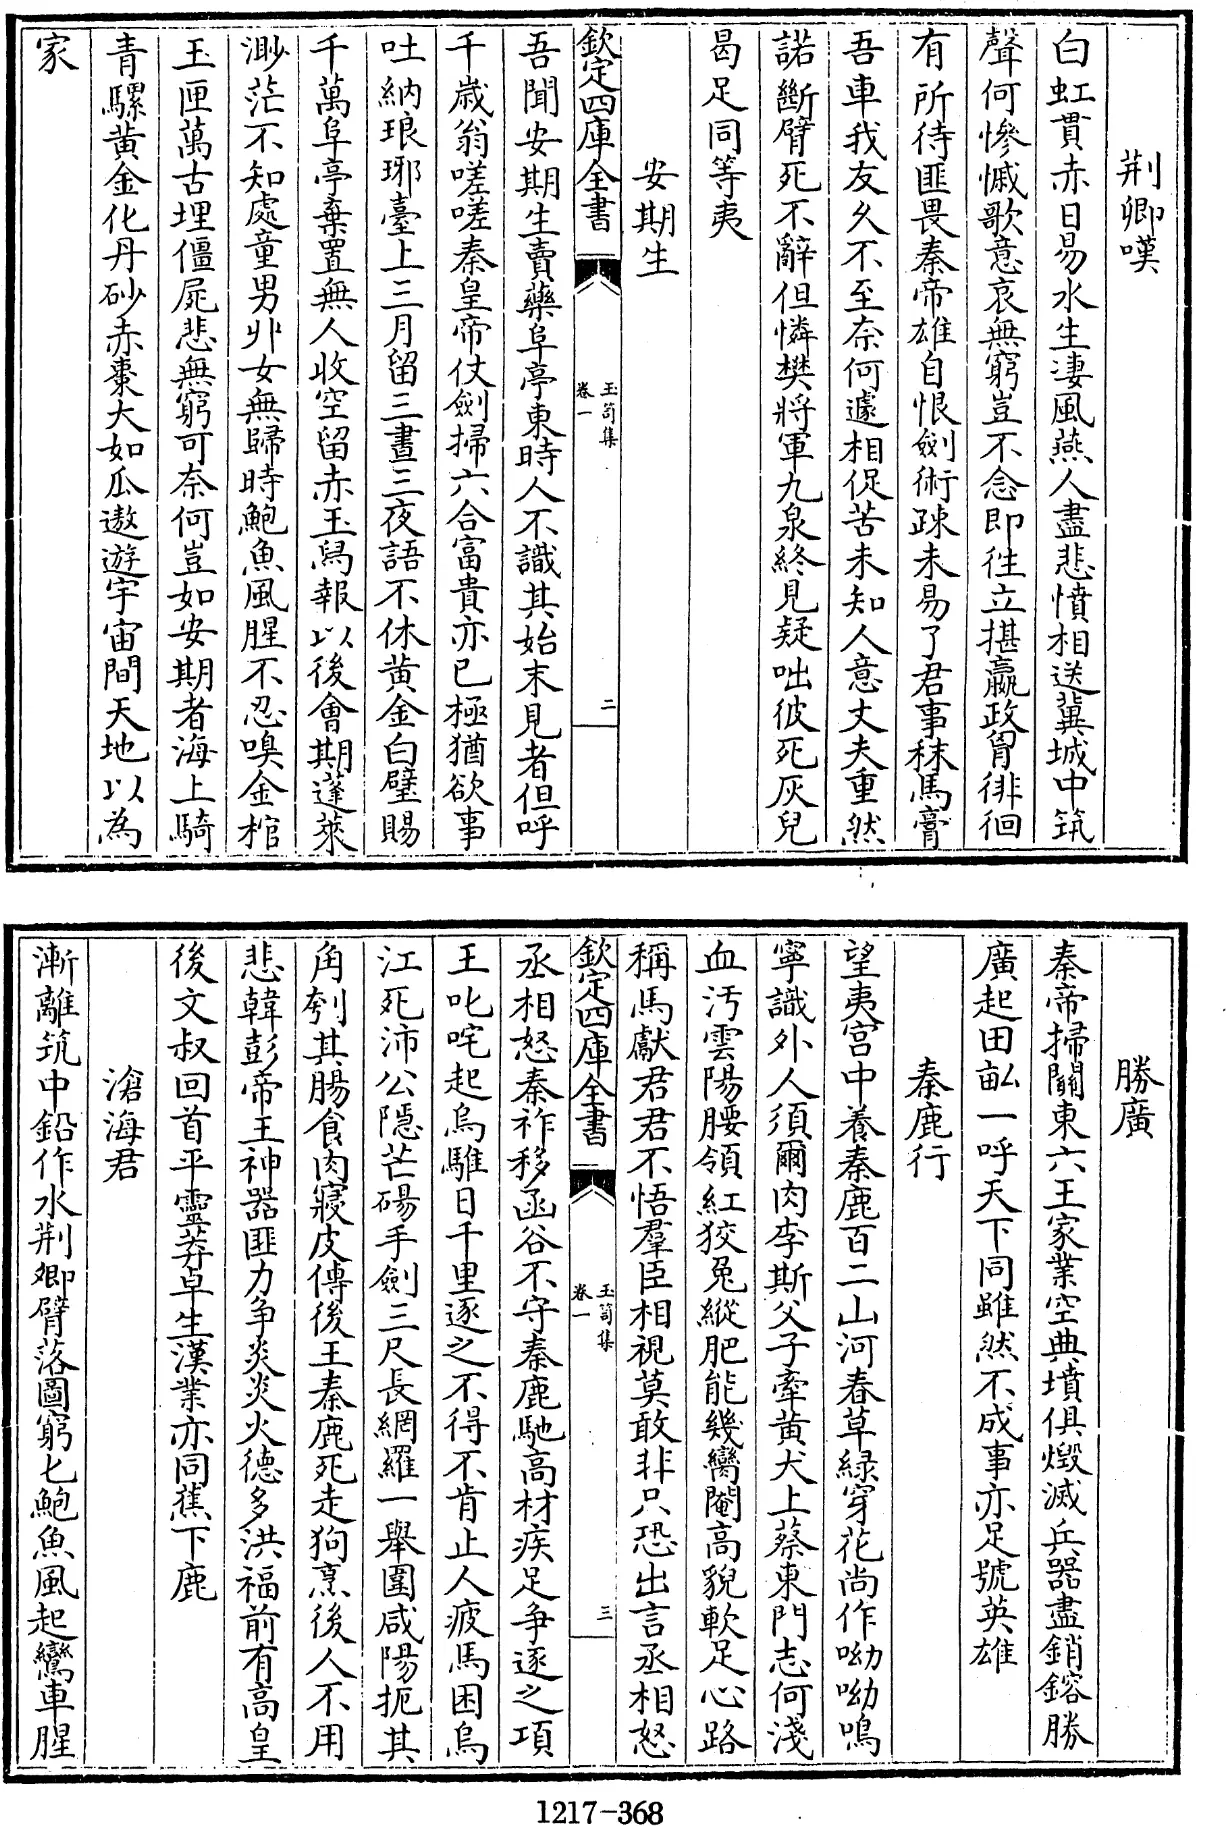 荆卿嘆
白虹貫赤日易水生凄風燕人盡悲憤相送冀城中筑
聲何慘慽歌意哀無窮豈不念即徃立揕嬴政胷徘徊
有所待匪畏秦帝雄自恨劒術疎未易了君事秣馬膏
吾車我友久不至奈何遽相促苦未知人意丈夫重然
諾斷臂死不辭但憐樊將軍九泉終見疑咄彼死灰兒
曷足同等夷
安期生
欽定四庫全書
玉笥集
卷一
二
吾聞安期生賣藥阜亭東時人不識其始末見者但呼
千歲翁嗟嗟秦皇帝仗劒掃六合富貴亦已極猶欲事
吐納琅琊臺上三月留三晝三夜語不休黄金白璧賜
千萬阜亭棄置無人收空留赤玉舄報以後會期蓬萊
渺茫不知處童男丱女無歸時鮑魚風腥不忍嗅金棺
玉匣萬古埋僵屍悲無窮可奈何豈如安期者海上騎
青騾黄金化丹砂赤棗大如瓜遨遊宇宙間天地以為
家
勝廣
秦帝掃關東六王家業空典墳俱燬滅兵器盡銷鎔勝
廣起田畝一呼天下同雖然不成事亦足號英雄
秦鹿行
望夷宫中養秦鹿百二山河春草緑穿花尚作呦呦鳴
寧識外人須爾肉李斯父子牽黄犬上蔡東門志何淺
血汚雲陽腰領紅狡兔縱肥能幾臠閹高貌軟足心路
稱馬獻君君不悟羣臣相視莫敢非只恐出言丞相怒
欽定四庫全書
玉笥集
卷一
三
丞相怒秦祚移函谷不守秦鹿馳高材疾足争逐之項
王叱咤起烏騅日千里逐之不得不肯止人疲馬困烏
江死沛公隱芒碭手劒三尺長網羅一舉圍咸陽扼其
角刳其腸食肉寢皮傳後王秦鹿死走狗烹後人不用
悲韓彭帝王神器匪力争炎炎火德多洪福前有高皇
後文叔回首平靈莽卓生漢業亦同蕉下鹿
滄海君
漸離筑中鉛作水荆卿臂落圖窮匕鮑魚風起鸞車腥
1217-368